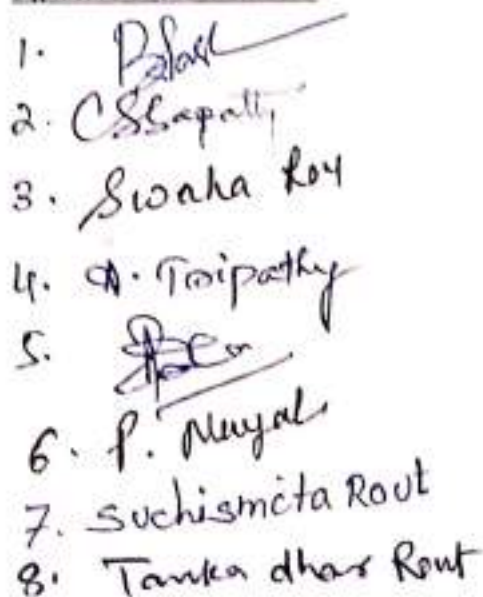 1.
2. CSSapathy
3. Swaha Roy
4. A. Tripathy
5.
6. P.
7. Suchismita Rout
8. Tanka dhar Rout